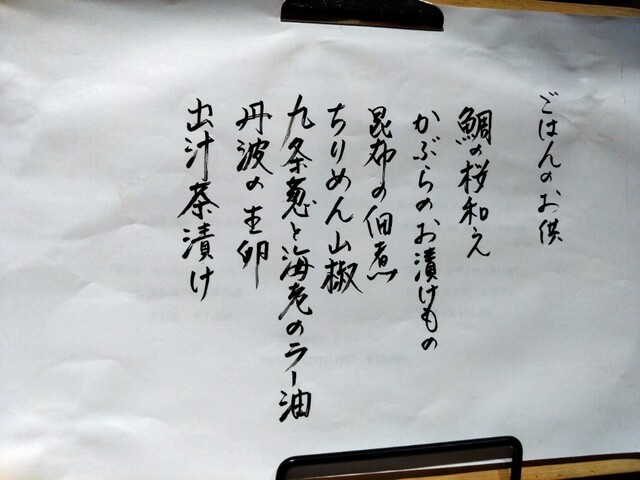 ごはんのお供
鯛の桜和え
かぶらのお漬けもの
昆布の佃煮
ちりめん山椒
九条葱と海老のラー油
丹波の生卵
出汁茶漬け